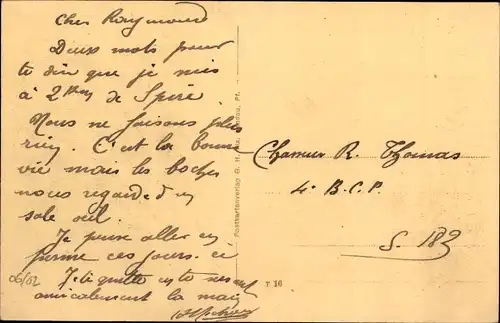 Cher Raymond
Deux mots pour
te dire que je suis
à 2 km de Spire.
Nous ne faisons plus
rien. C'est la bonne
vie mais les boches
nous regardent d'un
sale œil.
Je pense aller en
perme ces jours-ci
Je te quitte en te serrant
amicalement la main
06/02
Postkartenverlag G. H.
Chasseur R. Thomas
4e B.C.P.
S. P. 183
T 16